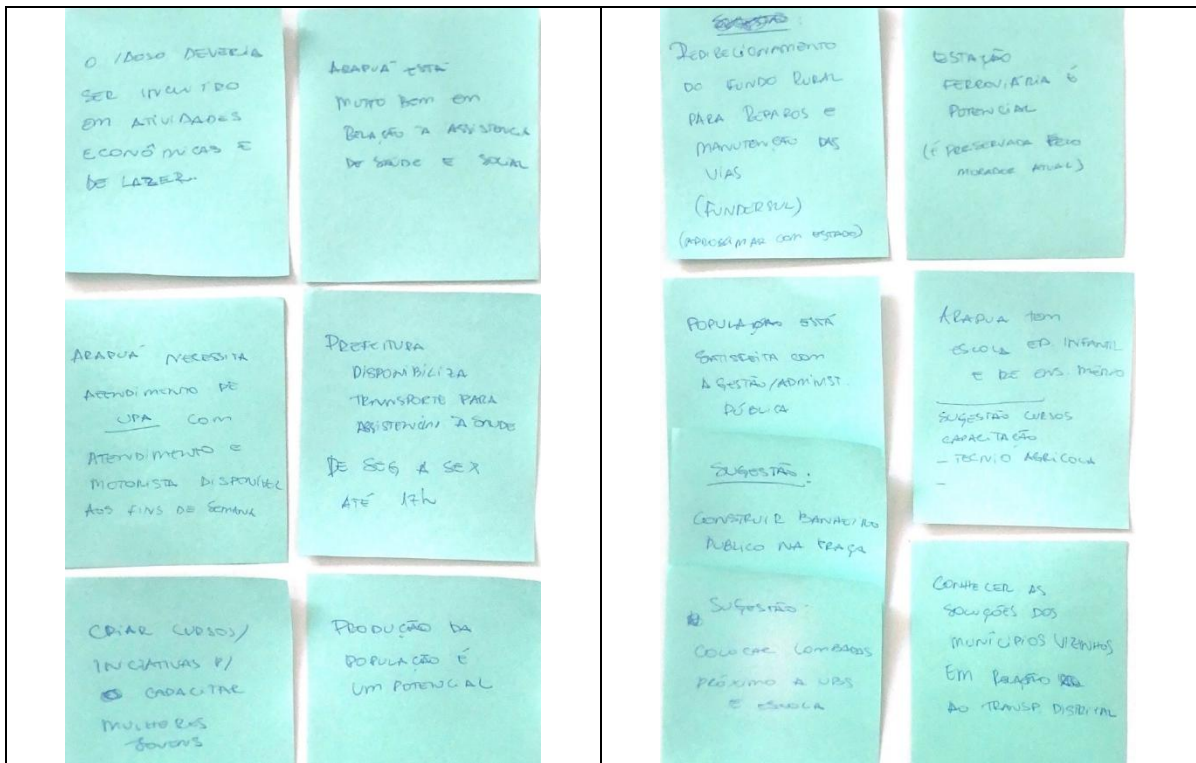 O IDOSO DEVERIA
SER INCLUÍDO
EM ATIVIDADES
ECONÔMICAS E
DE LAZER.
ARAPUÁ ESTÁ
MUITO BEM EM
RELAÇÃO À ASSISTÊNCIA
DE SAÚDE E SOCIAL
ARAPUÁ NECESSITA
ATENDIMENTO DE
UPA COM
ATENDIMENTO E
MOTORISTA DISPONÍVEL
AOS FINS DE SEMANA
PREFEITURA
DISPONIBILIZA
TRANSPORTE PARA
ASSISTÊNCIA À SAÚDE
DE SEG A SEX
ATÉ 17h
CRIAR CURSOS/
INICIATIVAS P/
CAPACITAR
MULHERES
JOVENS
PRODUÇÃO DA
POPULAÇÃO É
UM POTENCIAL
SUGESTÃO:
REDIRECIONAMENTO
DO FUNDO RURAL
PARA REPAROS E
MANUTENÇÃO DAS
VIAS
(FUNDERSUL)
(APROXIMAR COM ESTADO)
ESTAÇÃO
FERROVIÁRIA É
POTENCIAL
(É PRESERVADA PELO
MORADOR ATUAL)
POPULAÇÃO ESTÁ
SATISFEITA COM
A GESTÃO/ADMINIST.
PÚBLICA
SUGESTÃO:
CONSTRUIR BANHEIRO
PÚBLICO NA PRAÇA
SUGESTÃO:
COLOCAR LOMBADAS
PRÓXIMO A UBS
E ESCOLA
ARAPUA TEM
ESCOLA ED. INFANTIL
E DE ENS. MÉDIO
SUGESTÃO CURSOS
CAPACITAÇÃO
- TÉCNICO AGRÍCOLA
-
CONHECER AS
SOLUÇÕES DOS
MUNICÍPIOS VIZINHOS
EM RELAÇÃO
AO TRANSP. DISTRITAL